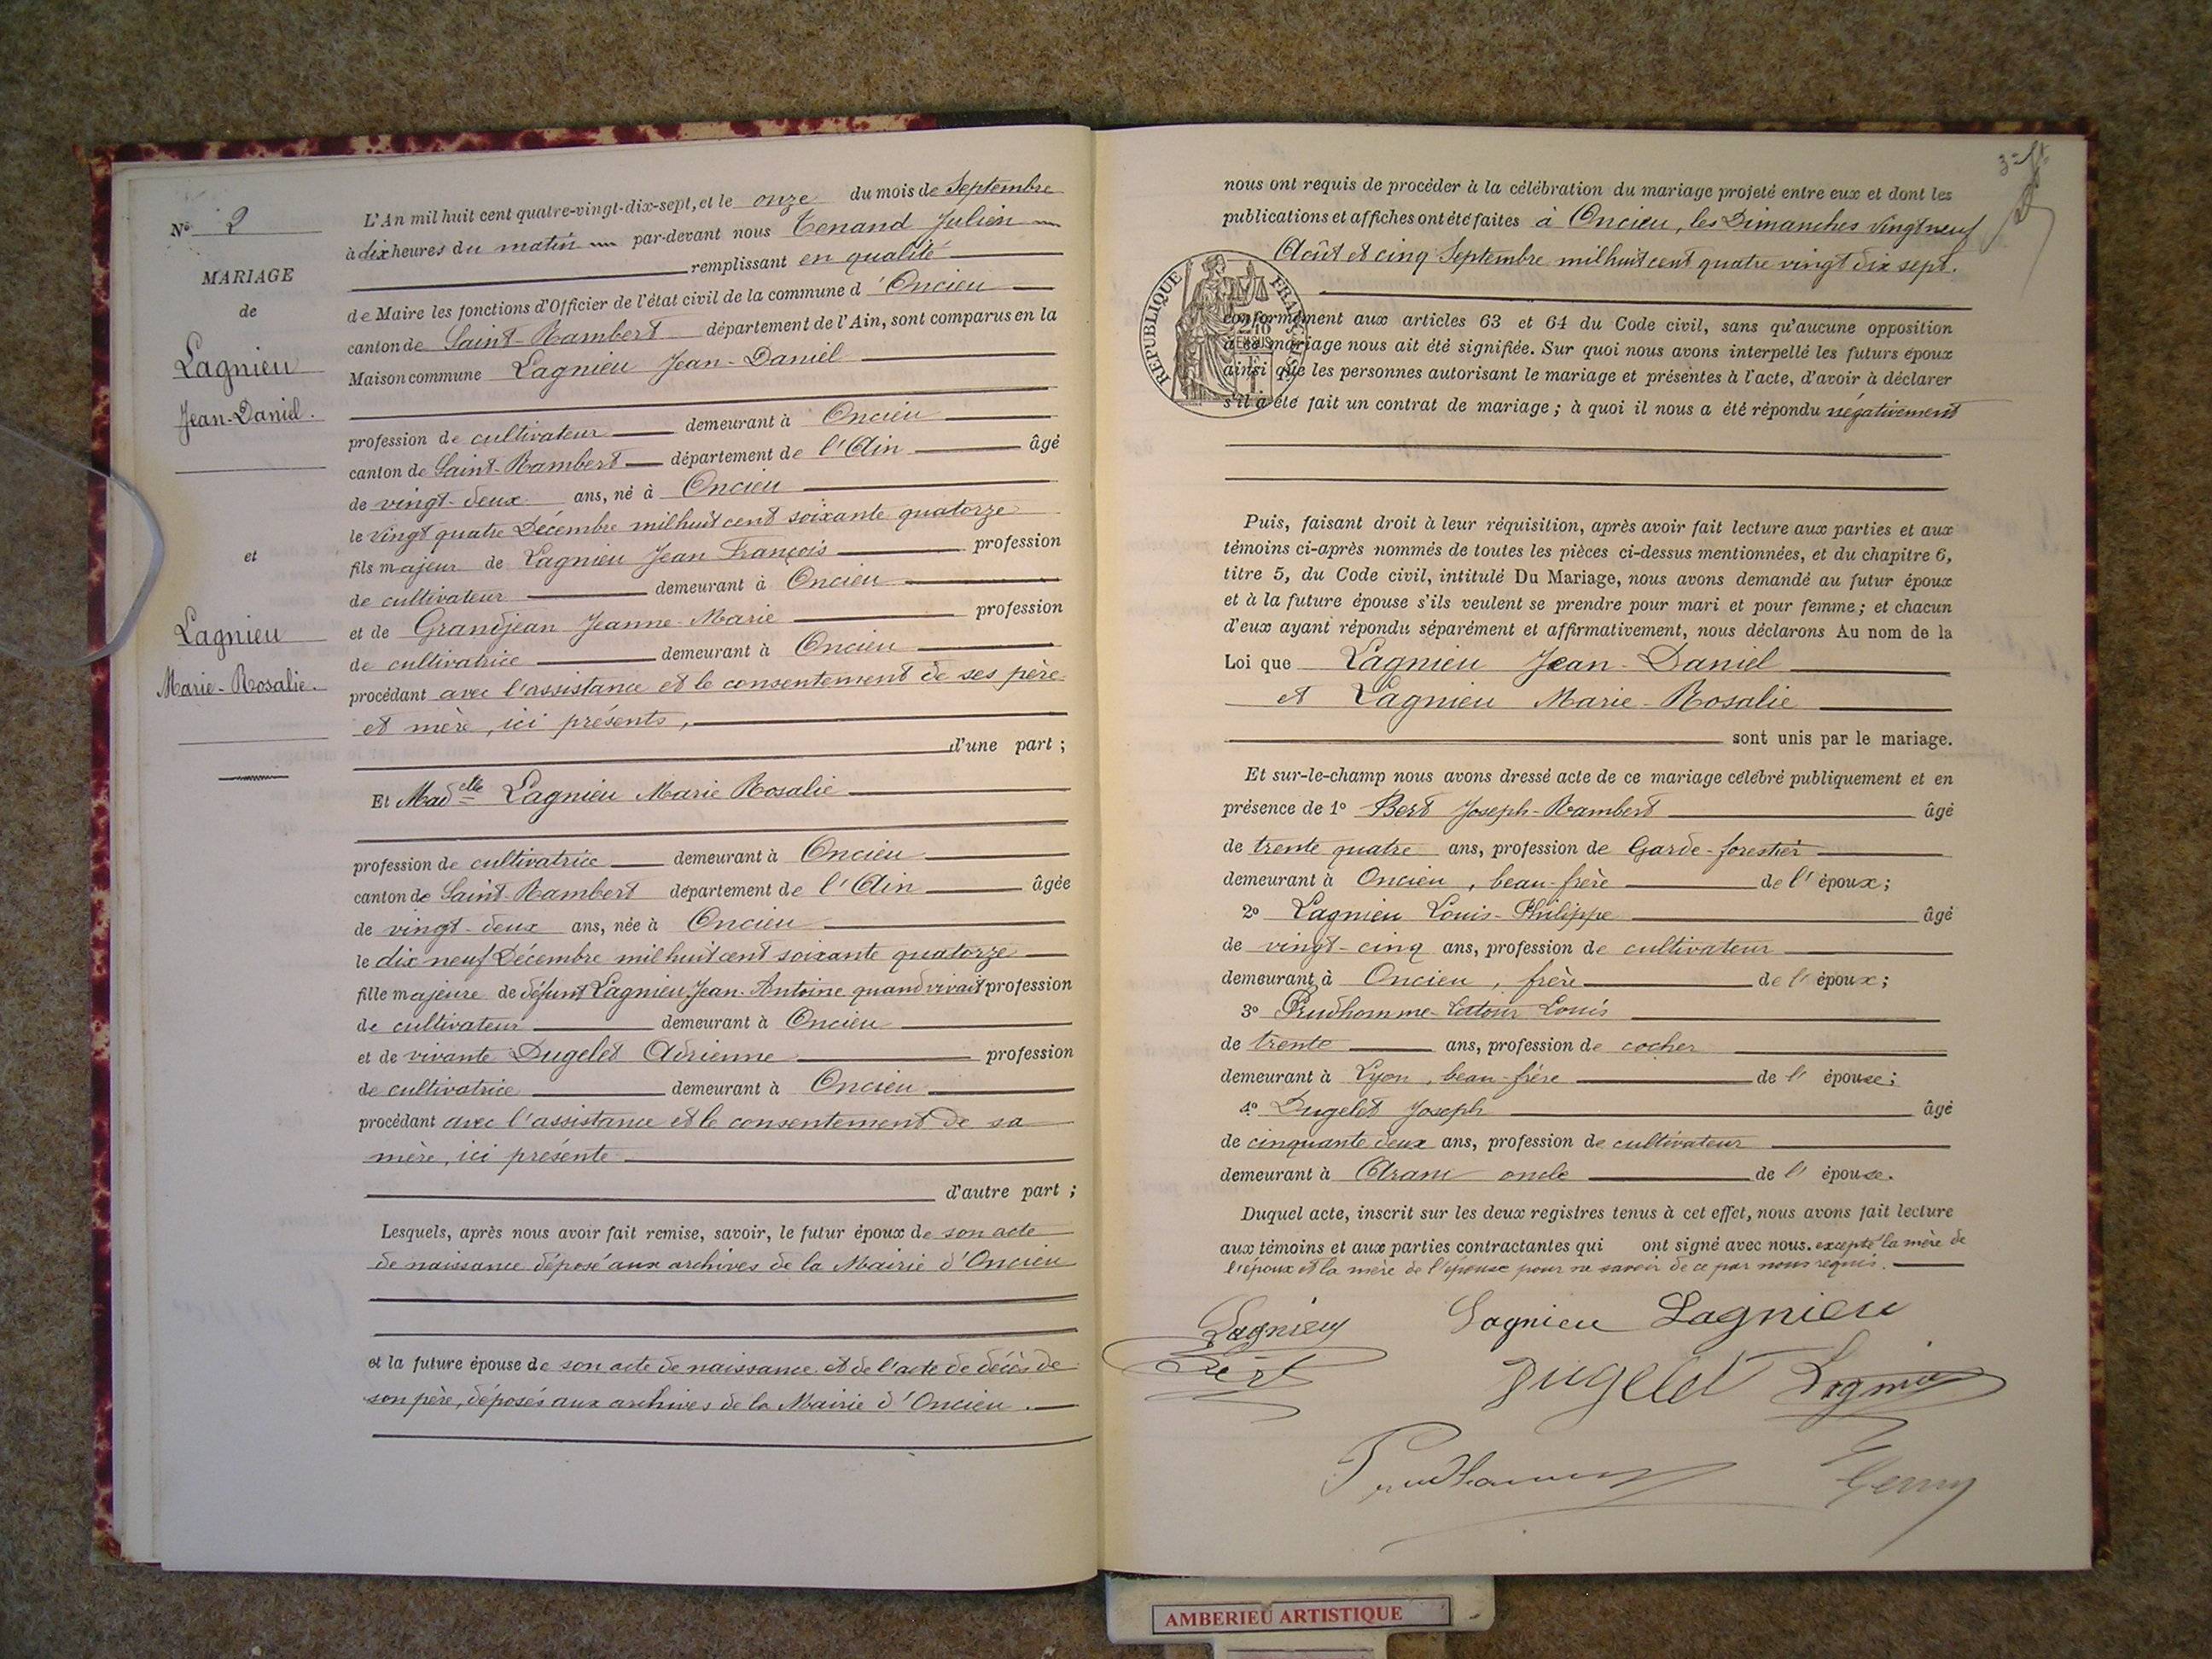 Nº 2
MARIAGE
de
Lagnieu
Jean-Daniel.
et
Lagnieu
Marie-Rosalie.
L'An mil huit cent quatre-vingt-dix-sept, et le onze du mois de Septembre
à dix heures du matin par-devant nous Tenand Julien
remplissant en qualité
de Maire les fonctions d'Officier de l'état civil de la commune d'Oncieu
canton de Saint-Rambert département de l'Ain, sont comparus en la
Maison commune Lagnieu Jean-Daniel
profession de cultivateur demeurant à Oncieu
canton de Saint-Rambert département de l'Ain âgé
de vingt-deux ans, né à Oncieu
le vingt quatre Décembre mil huit cent soixante quatorze
fils majeur de Lagnieu Jean François profession
de cultivateur demeurant à Oncieu
et de Grandjean Jeanne-Marie profession
de cultivatrice demeurant à Oncieu
procédant avec l'assistance et le consentement de ses père
et mère, ici présents,
d'une part ;
Et Madelle Lagnieu Marie Rosalie
profession de cultivatrice demeurant à Oncieu
canton de Saint-Rambert département de l'Ain âgée
de vingt-deux ans, née à Oncieu
le dix neuf Décembre mil huit cent soixante quatorze
fille majeure de défunt Lagnieu Jean-Antoine quand vivait profession
de cultivateur demeurant à Oncieu
et de vivante Dugelet Adrienne profession
de cultivatrice demeurant à Oncieu
procédant avec l'assistance et le consentement de sa
mère, ici présente
d'autre part ;
Lesquels, après nous avoir fait remise, savoir, le futur époux de son acte
de naissance déposé aux archives de la Mairie d'Oncieu
et la future épouse de son acte de naissance et de l'acte de décès de
son père, déposés aux archives de la Mairie d'Oncieu.
nous ont requis de procéder à la célébration du mariage projeté entre eux et dont les
publications et affiches ont été faites à Oncieu, les Dimanches vingt neuf
Août et cinq Septembre mil huit cent quatre vingt dix sept.
RÉPUBLIQUE FRANÇAISE
conformément aux articles 63 et 64 du Code civil, sans qu'aucune opposition
à ce mariage nous ait été signifiée. Sur quoi nous avons interpellé les futurs époux
ainsi que les personnes autorisant le mariage et présentes à l'acte, d'avoir à déclarer
s'il a été fait un contrat de mariage ; à quoi il nous a été répondu négativement
Puis, faisant droit à leur réquisition, après avoir fait lecture aux parties et aux
témoins ci-après nommés de toutes les pièces ci-dessus mentionnées, et du chapitre 6,
titre 5, du Code civil, intitulé Du Mariage, nous avons demandé au futur époux
et à la future épouse s'ils veulent se prendre pour mari et pour femme; et chacun
d'eux ayant répondu séparément et affirmativement, nous déclarons Au nom de la
Loi que Lagnieu Jean-Daniel
et Lagnieu Marie-Rosalie
sont unis par le mariage.
Et sur-le-champ nous avons dressé acte de ce mariage célébré publiquement et en
présence de 1º Bert Joseph-Rambert âgé
de trente quatre ans, profession de Garde-forestier
demeurant à Oncieu, beau-frère de l'époux;
2º Lagnieu Louis-Philippe âgé
de vingt-cinq ans, profession de cultivateur
demeurant à Oncieu, frère de l'époux;
3º Prudhomme-Latour Louis
de trente ans, profession de cocher
demeurant à Lyon, beau-frère de l'épouse;
4º Dugelet Joseph âgé
de cinquante deux ans, profession de cultivateur
demeurant à Aranc oncle de l'épouse.
Duquel acte, inscrit sur les deux registres tenus à cet effet, nous avons fait lecture
aux témoins et aux parties contractantes qui ont signé avec nous. excepté la mère de
l'époux et la mère de l'épouse pour ne savoir de ce par nous requis.
Lagnieu Lagnieu Lagnieu
Bert Dugelet Lagnieu
Prudhomme
AMBERIEU ARTISTIQUE